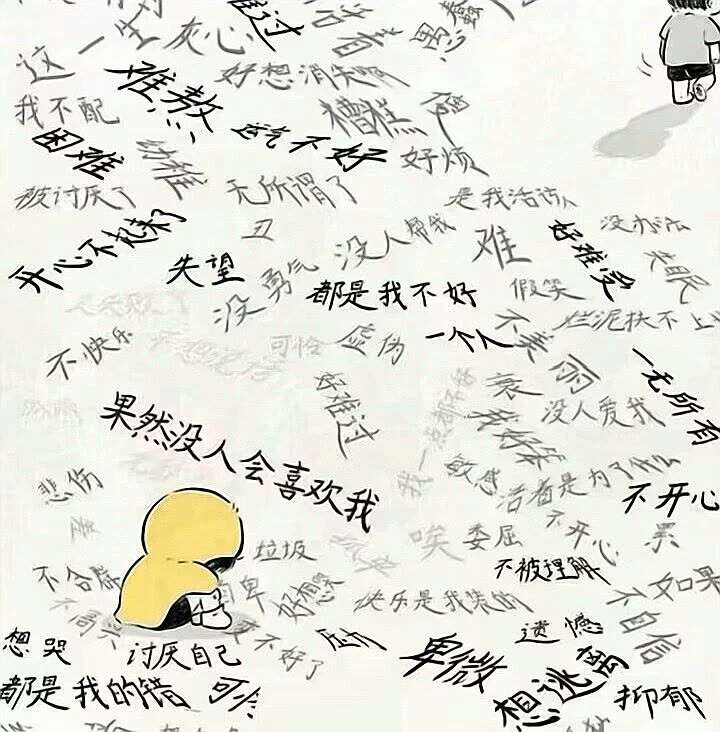 难过
活着
这一生
灰心
好想消失啊
难熬
我不配
槽糕
困难
运气不好
好烦
幼稚
被讨厌了
无所谓了
是我活该
丑
没人帮我
难
好难受
没办法
开心不起来了
失望
没勇气
都是我不好
假笑
失眠
不快乐
可怜
虚伪
一个人
不美丽
烂泥扶不上
一无所有
好难过
衰
没人爱我
果然没人会喜欢我
我好笨
悲伤
敏感
活着是为了什么
不开心
唉
委屈
不开心
累
垃圾
不合群
自卑
好想哭
不被理解
快乐是我装的
如果
不自信
想哭
讨厌自己
更不好了
卑微
遗憾
想逃离
都是我的错
可怜
抑郁